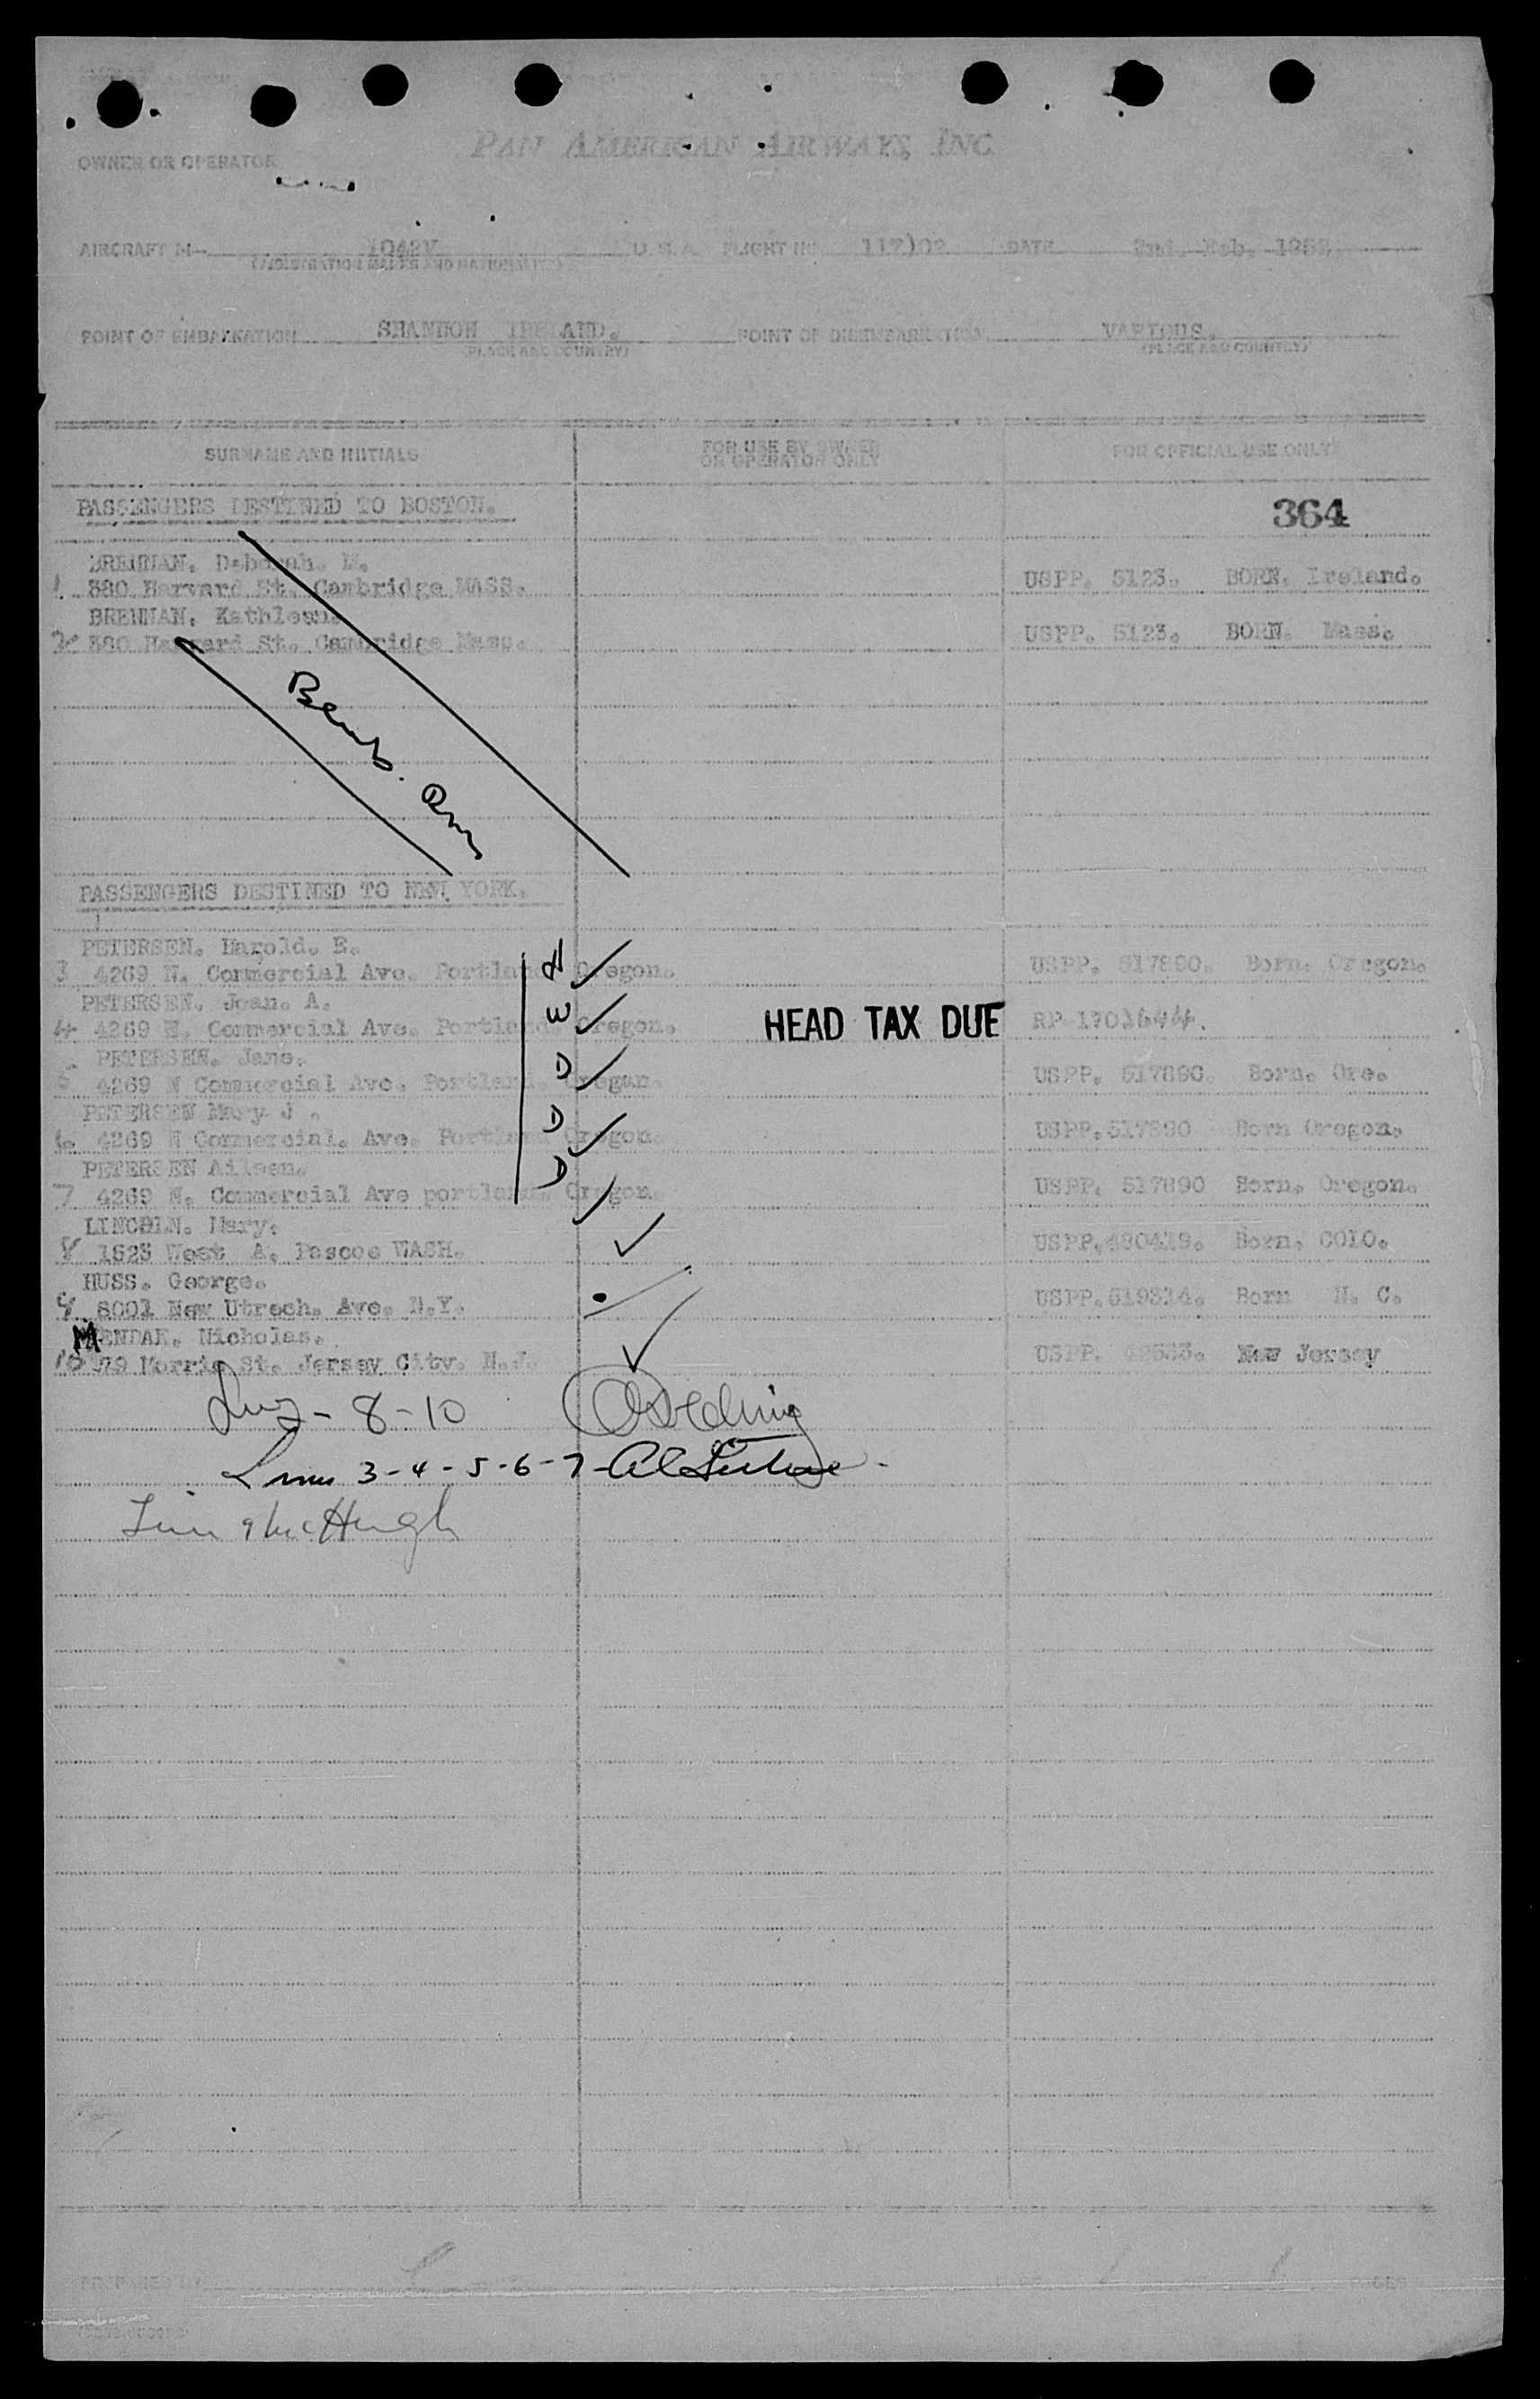 PAN AMERICAN AIRWAYS, INC
OWNER OR OPERATOR
AIRCRAFT 1042V U.S.A. FLIGHT NO. 117)02 DATE Feb.
(REGISTRATION MARKS AND NATIONALITY)
POINT OF EMBARKATION SHANNON IRELAND. POINT OF DISEMBARKATION VARIOUS.
(PLACE AND COUNTRY) (PLACE AND COUNTRY)
SURNAME AND INITIALS FOR USE BY OWNER OR OPERATOR ONLY FOR OFFICIAL USE ONLY
PASSENGERS DESTINED TO BOSTON. 364
BRENNAN. Deborah. M.
1. 380 Harvard St. Cambridge MASS. USPP. 5123. BORN. Ireland.
BRENNAN. Kathleen.
2 380 Harvard St. Cambridge Mass. USPP. 5123. BORN. Mass.
PASSENGERS DESTINED TO NEW YORK.
PETERSEN. Harold. E.
3 4269 N. Commercial Ave. Portland Oregon. H USPP. 517890. Born. Oregon.
PETERSEN. Jean. A.
4 4269 N. Commercial Ave. Portland. Oregon. W HEAD TAX DUE RP
PETERSEN. Jane.
5 4269 N Commercial Ave. Portland. Oregon. D USPP. 517890. Born. Ore.
PETERSEN Mary J.
6 4269 N Commercial. Ave. Portland Oregon. D USPP. 517890 Born Oregon.
PETERSEN Aileen.
7 4269 N. Commercial Ave portland. Oregon. D USPP. 517890 Born. Oregon.
LINCOLN. Mary.
8 1523 West A. Pascoe WASH. USPP. Born. COLO.
HUSS. George.
9 8001 New Utrech. Ave. N.Y. USPP. 519314. Born N. C.
MENDAK. Nicholas.
10 Morris St. Jersey City. N.J. USPP. New Jersey
8-10
Lines 3-4-5-6-7-
Line 9 McHugh
PREPARED BY
PAGES